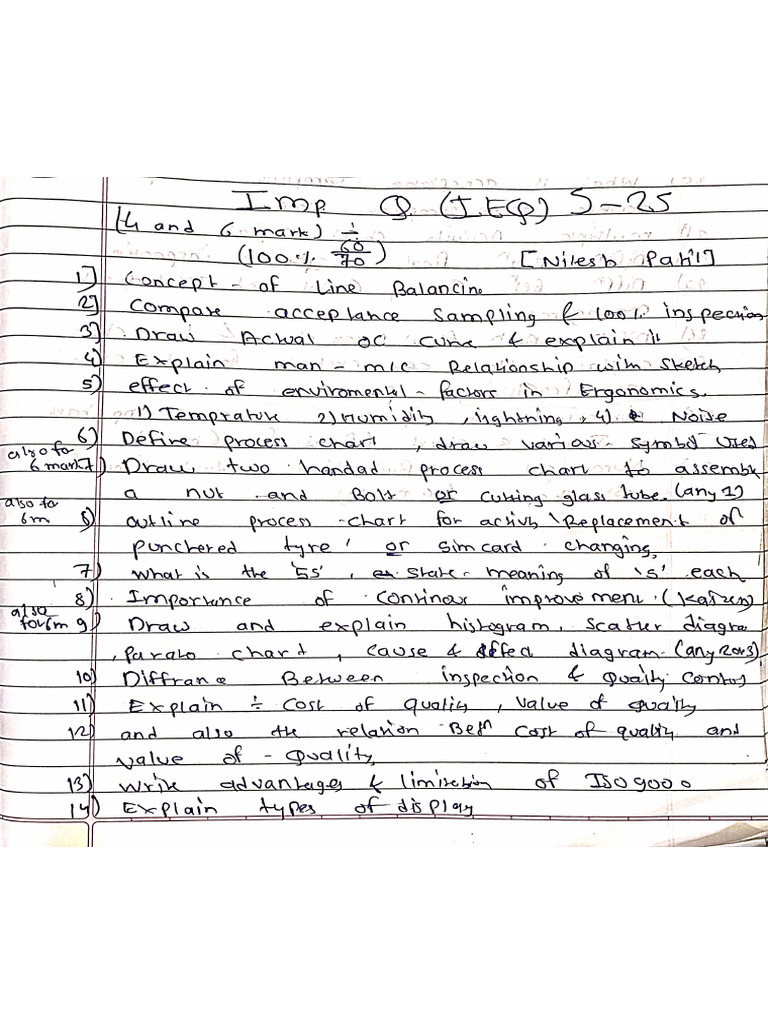 Imp Q. (I.E.Q) S-25
(4 and 6 mark) ÷
(100% 60/70) [Nilesh Patil]
1] Concept - of Line Balancine
2] Compare acceptance sampling & 100% inspection
3) Draw Actual OC curve & explain it
4) Explain man - m/c Relationship with sketch
5) effect of enviromental - factors in Ergonomics.
1) Temprature 2) Humidity, lightning, 4) Noise
6) Define process chart, draw various symbol used
also for 6 mark 7) Draw two handad process chart to assemble
a nut and Bolt or cutting glass tube. (any 1)
also for 6m 8) outline process chart for activity 'Replacement of
punchered tyre' or simcard changing,
7) what is the '5S', state meaning of 'S' each
8) Importance of continous improvement. (Kaizen)
also for 6m 9) Draw and explain histogram, scatter diagram
, Parato chart, cause & effect diagram (any 2or3)
10) Diffrance Between inspection & Quality control
11) Explain ÷ cost of quality, value of quality
12) and also the relation Betn cost of quality and
value of - Quality,
13) write advantages & limitation of ISO 9000
14) Explain types of display